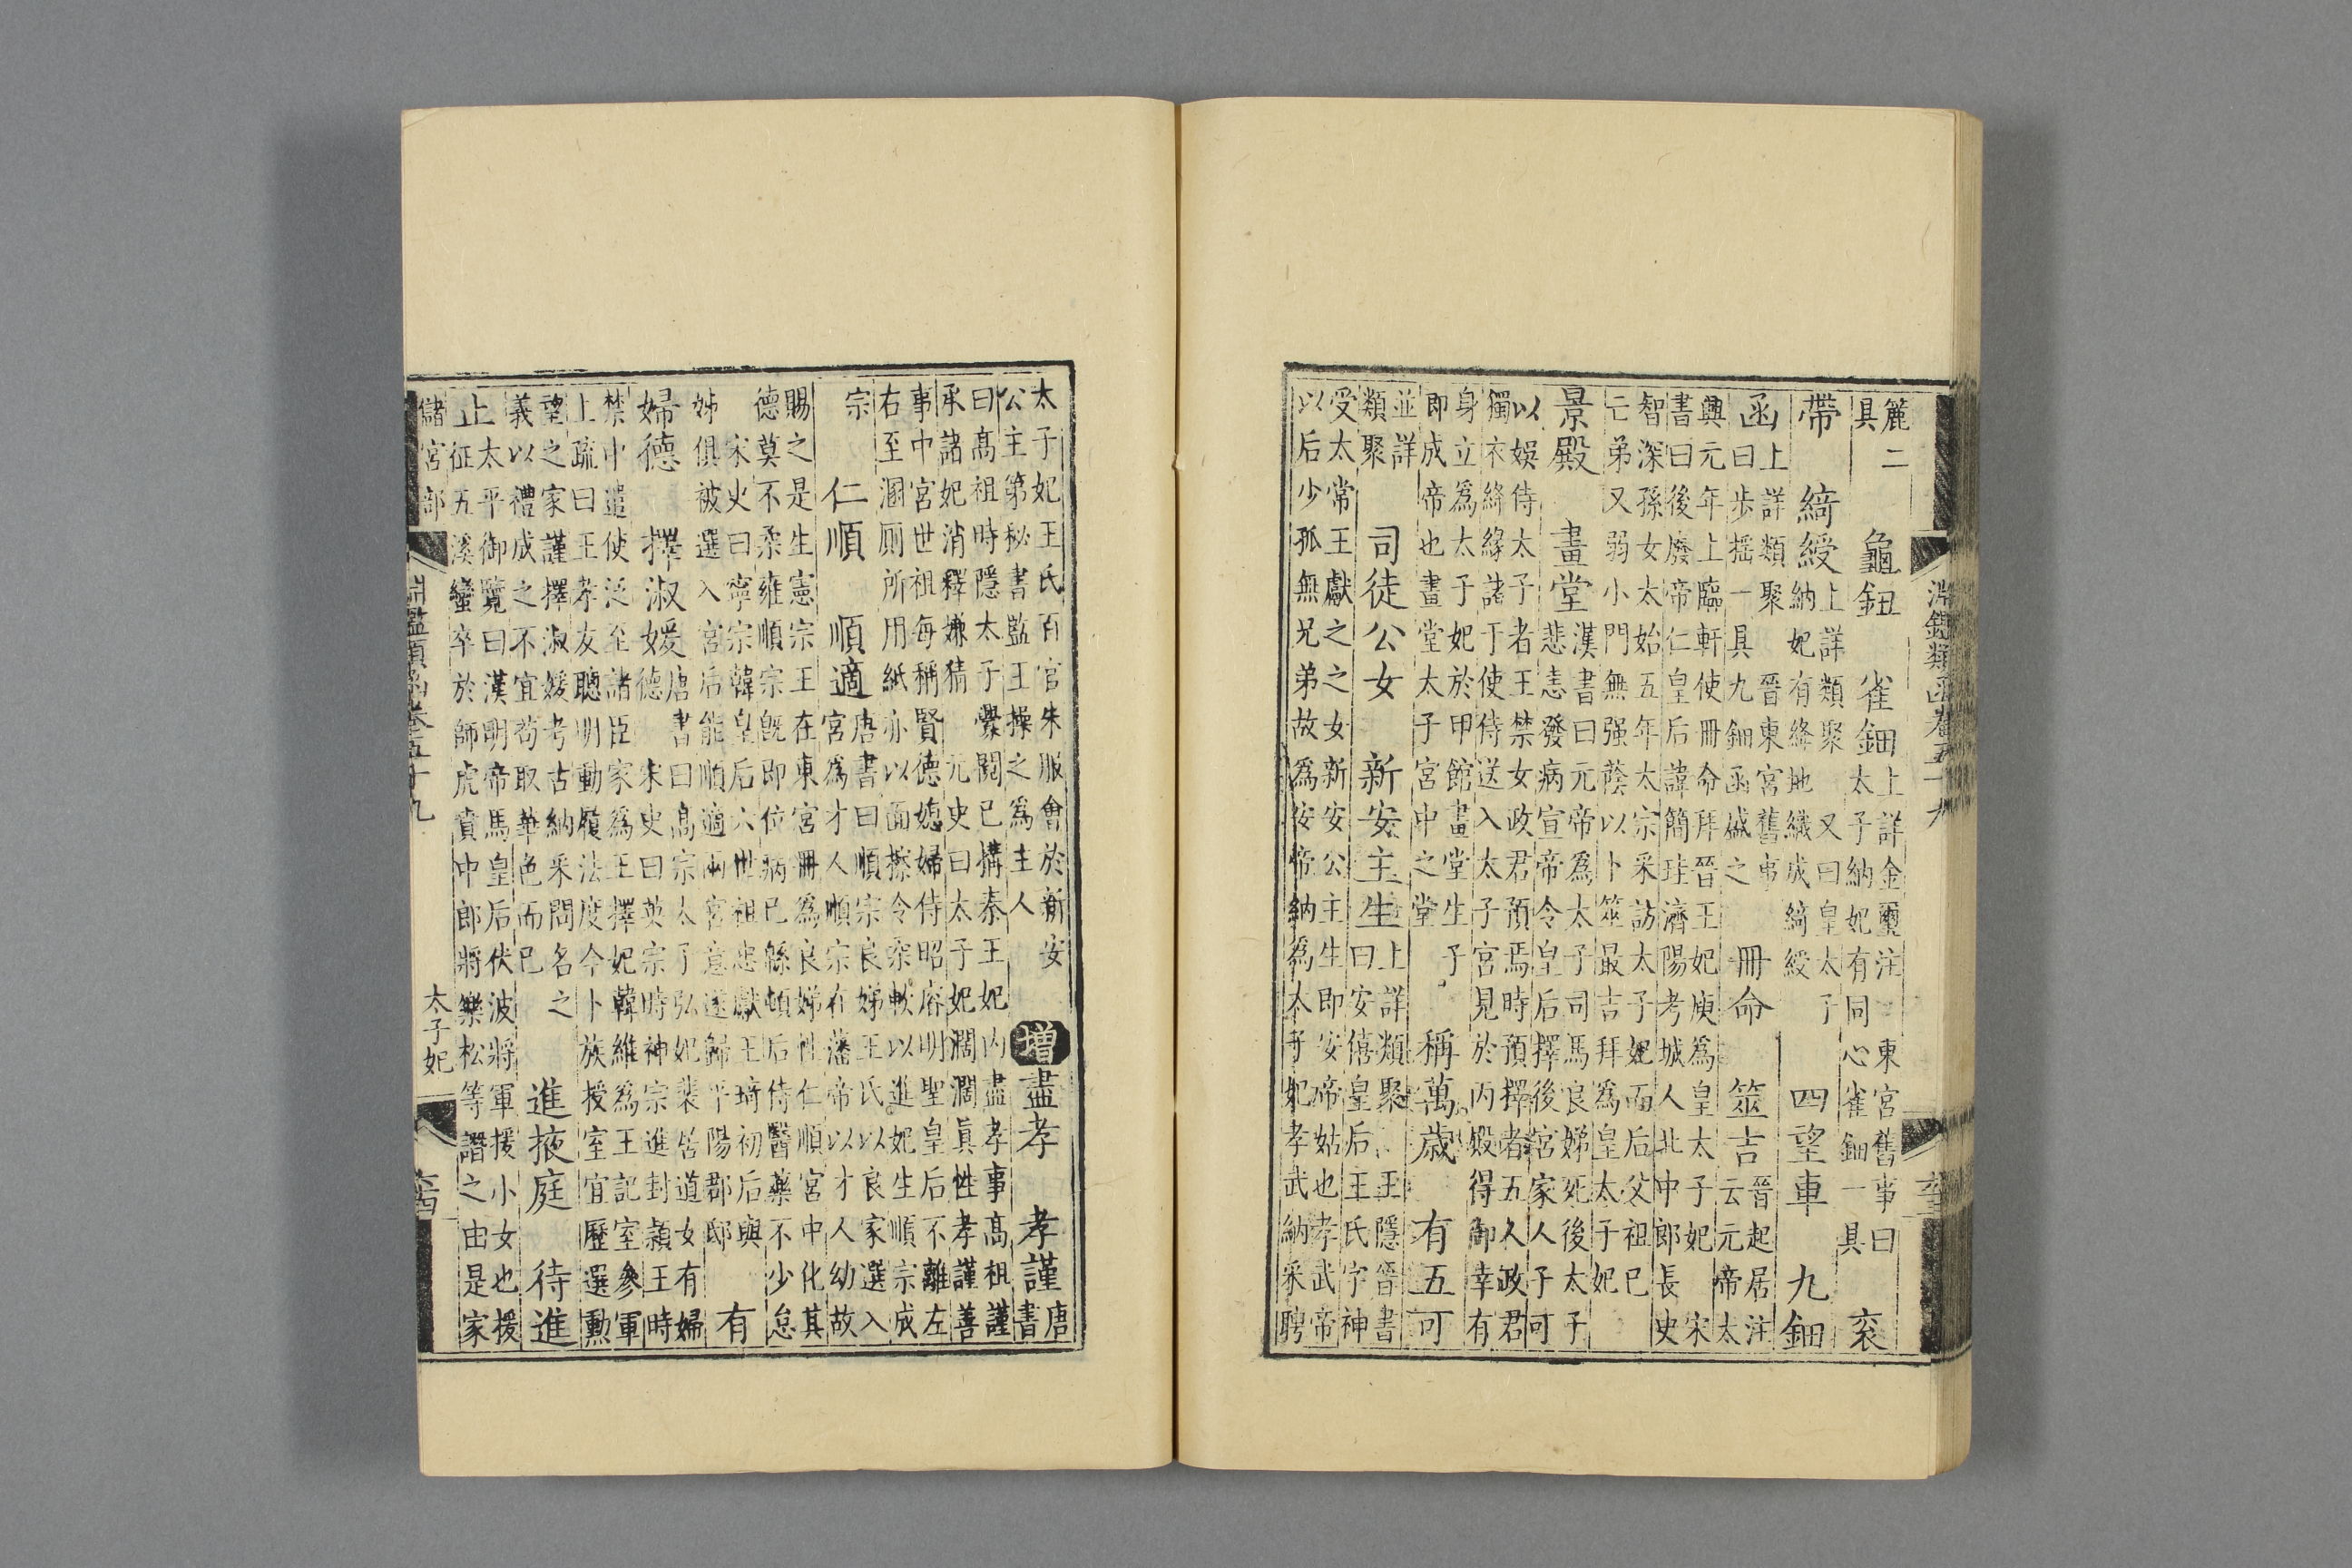 淵鑑類函卷五十九
簏二
具
龜鈕 雀鈿
上詳金璽注 東宮舊事曰
太子納妃有同心雀鈿一具
袞
帶 綺綬
上詳類聚 又曰皇太子
納妃有絳地織成綺綬
四望車 九鈿
函
上詳類聚 晉東宮舊事
曰步摇一具九鈿函盛之
冊命 筮吉
晉起居注
云元帝太
興元年上臨軒使冊命拜晉王妃庾為皇太子妃 宋
書曰後廢帝仁皇后諱簡珪濟陽考城人北中郎長史
智深孫女太始五年太宗采訪太子妃而后父祖已
亡弟又弱小門無强蔭以卜筮最吉拜為皇太子妃
景殿 畫堂
漢書曰元帝為太子司馬良娣死後太子
悲恚發病宣帝令皇后擇後宮家人子可
以娛侍太子者王禁女政君預焉時預擇者五人政君
獨衣絳緣諸于使侍送入太子宮見於丙殿得御幸有
身立為太子妃於甲館畫堂生子
即成帝也畫堂太子宮中之堂
稱萬歲 有五可
並詳
類聚
司徒公女 新安主生
上詳類聚 王隱晉書
曰安僖皇后王氏字神
受太常王獻之之女新安公主生即安帝姑也孝武帝
以后少孤無兄弟故為安帝納為太子妃孝武納采聘
太子妃王氏百官朱服會於新安
公主第秘書監王操之為主人
增 盡孝 孝謹
唐
書
曰髙祖時隱太子釁鬩已搆秦王妃内盡孝事髙祖謹
承諸妃消釋嫌猜 元史曰太子妃濶濶真性孝謹善
事中宮世祖每稱賢德媳婦侍昭睿明聖皇后不離左
右至溷厠所用紙亦以面擦令柔軟以進妃生順宗成
宗 仁順 順適
唐書曰順宗良娣王氏以良家選入
宮為才人順宗在藩帝以才人幼故
賜之是生憲宗王在東宮冊為良娣性仁順宮中化其
德莫不柔雍順宗旣即位病已緜頓后侍醫藥不少怠
宋史曰寧宗韓皇后六世祖忠獻王琦初后與
姊俱被選入宮后能順適兩宮意遂歸平陽郡邸
有
婦德 擇淑媛
唐書曰髙宗太子弘妃裴居道女有婦
德 宋史曰英宗時神宗進封潁王時
禁中遣使泛至諸臣家為王擇妃韓維為王記室參軍
上疏曰王孝友聰明動履法度今卜族授室宜歷選勲
望之家謹擇淑媛考古納采問名之
義以禮成之不宜苟取華色而已
進掖庭 待進
止
太平御覽曰漢明帝馬皇后伏波將軍援小女也援
征五溪蠻卒於師虎賁中郎將樂松等譖之由是家
儲宮部 淵鑑類函卷五十九 太子妃